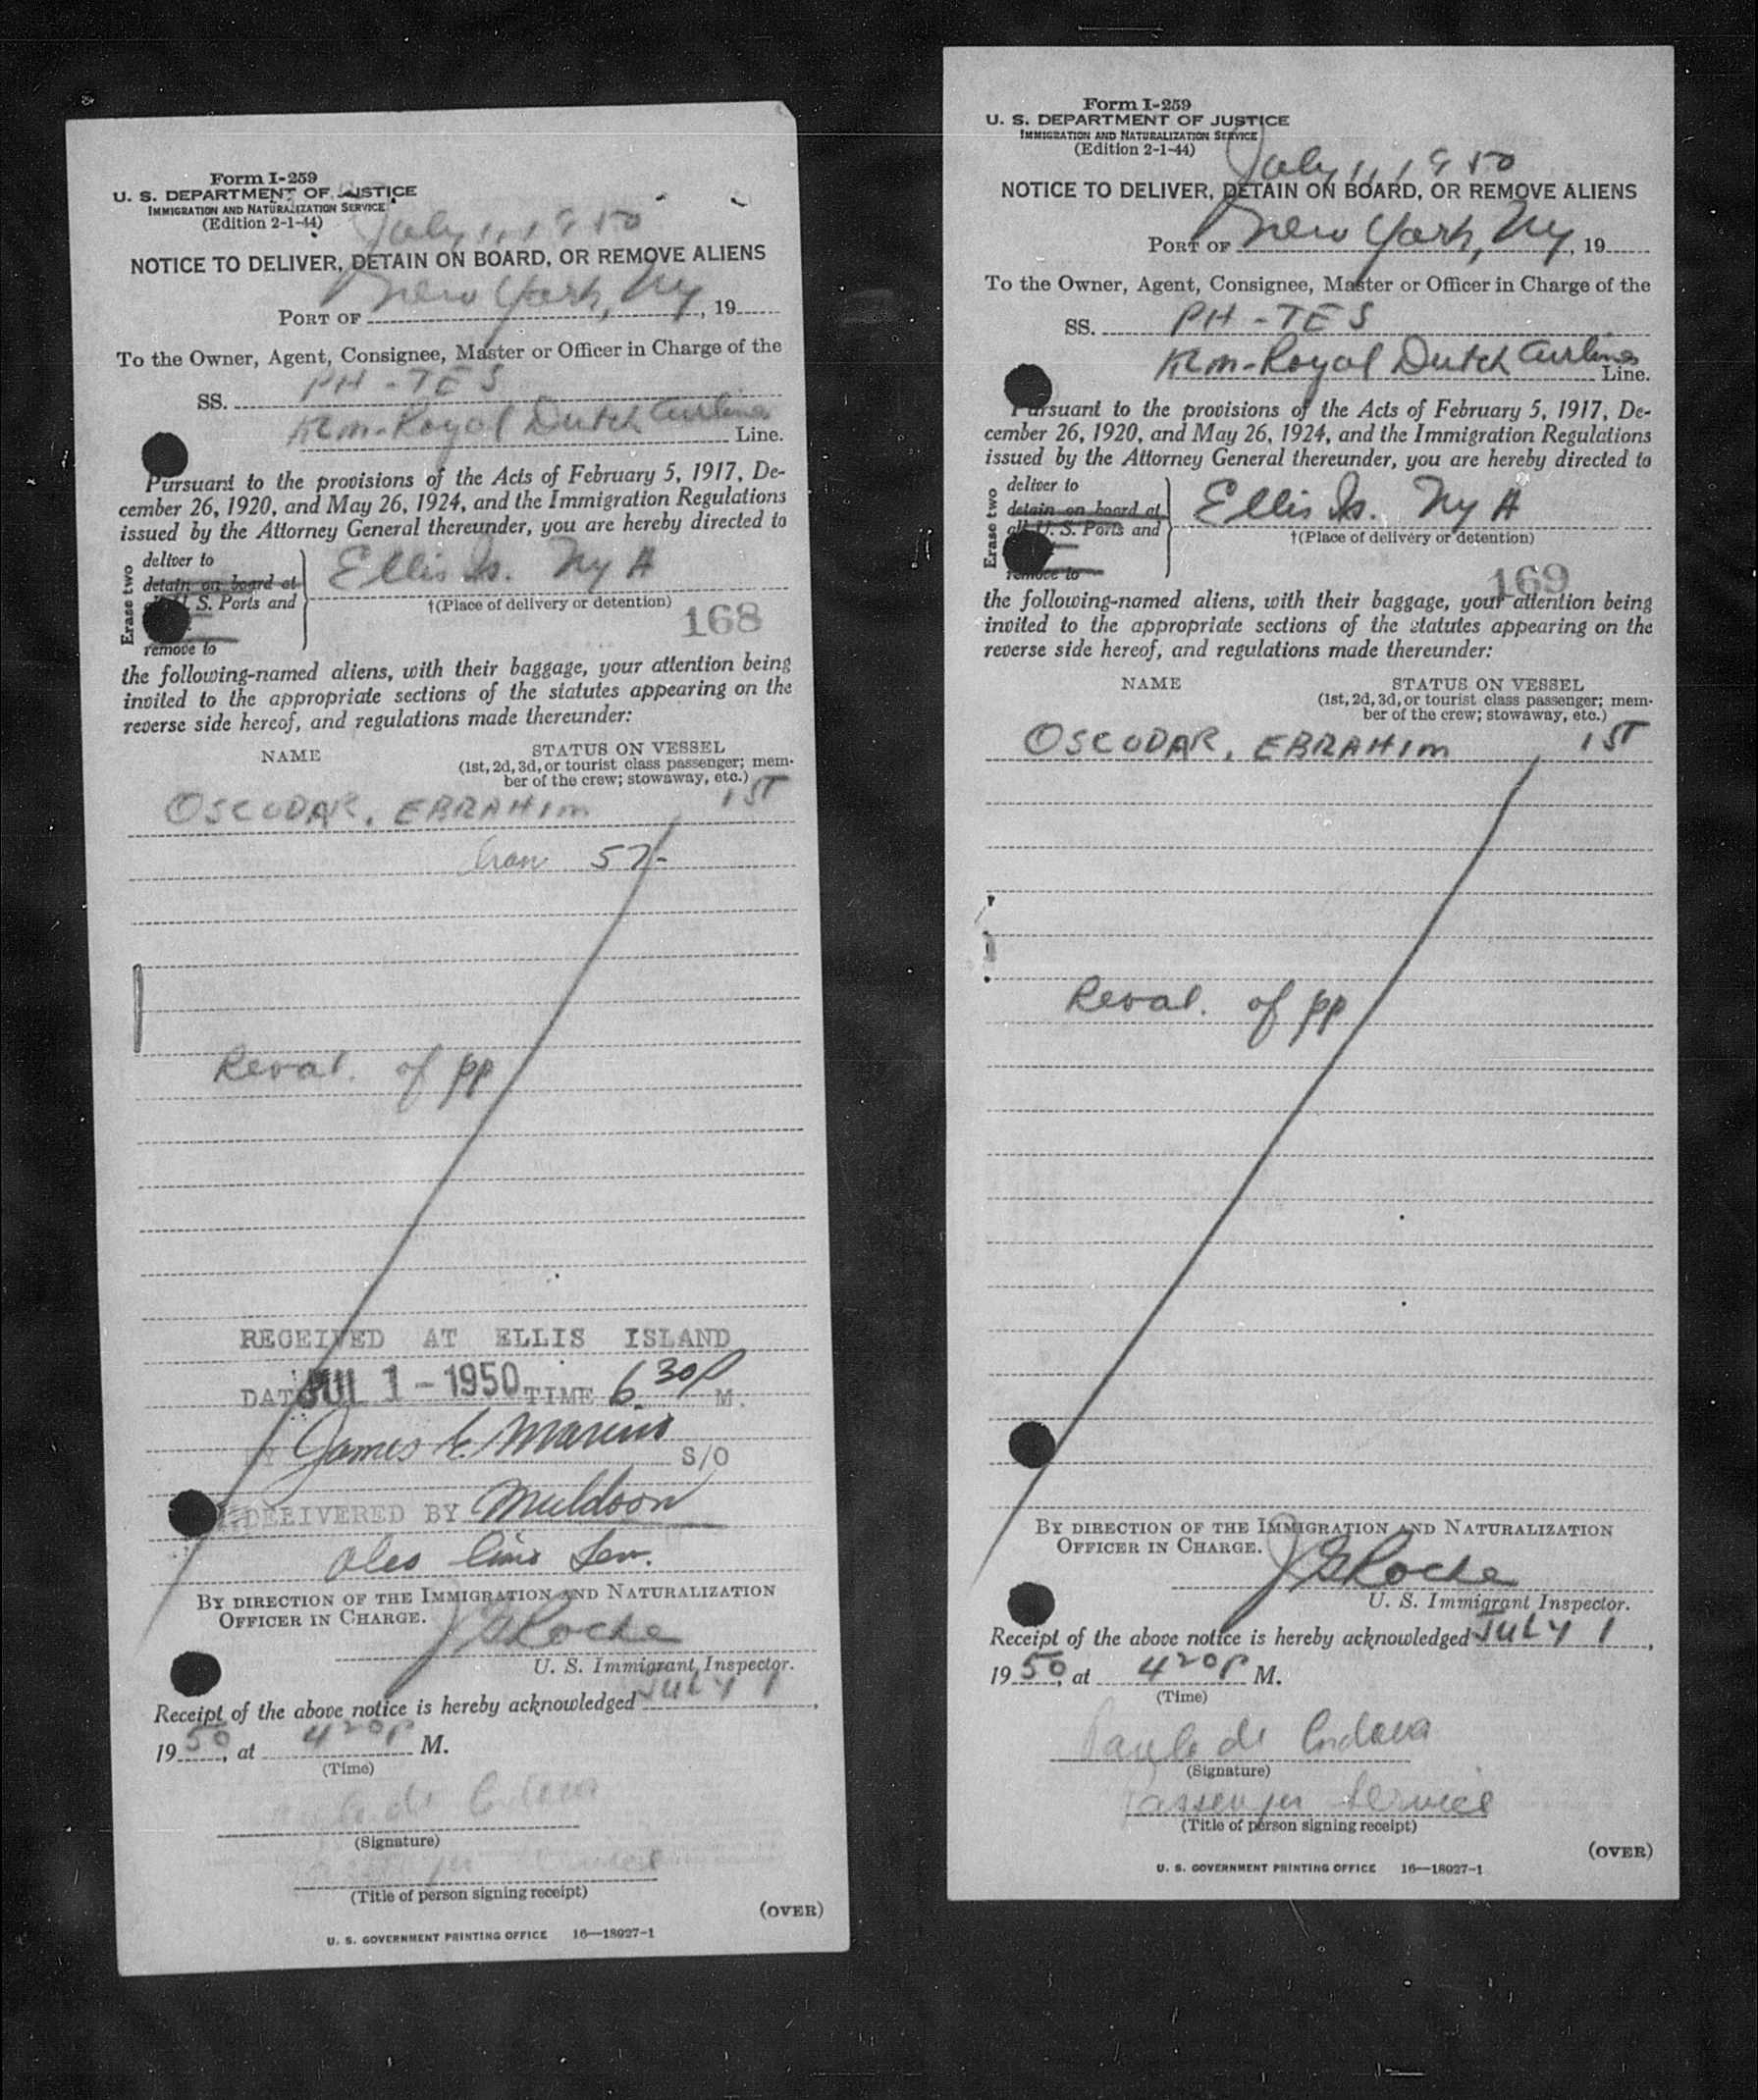 Form I-259
U. S. DEPARTMENT OF JUSTICE
IMMIGRATION AND NATURALIZATION SERVICE
(Edition 2-1-44)
July 1, 1950
NOTICE TO DELIVER, DETAIN ON BOARD, OR REMOVE ALIENS
PORT OF New York, Ny, 19
To the Owner, Agent, Consignee, Master or Officer in Charge of the
SS. PH-TES
KLM-Royal Dutch Airlines Line.
Pursuant to the provisions of the Acts of February 5, 1917, De-
cember 26, 1920, and May 26, 1924, and the Immigration Regulations
issued by the Attorney General thereunder, you are hereby directed to
Erase two
deliver to
detain on board at
S. Ports and
remove to
Ellis Is. Ny H
†(Place of delivery or detention)
168
the following-named aliens, with their baggage, your attention being
invited to the appropriate sections of the statutes appearing on the
reverse side hereof, and regulations made thereunder:
NAME STATUS ON VESSEL
(1st, 2d, 3d, or tourist class passenger; mem-
ber of the crew; stowaway, etc.)
OSCODAR, EBRAHIM 1ST
Iran 57-
Reval. of pp
RECEIVED AT ELLIS ISLAND
DATE JUL 1-1950 TIME 6 30 P M.
BY James E. S/O
DELIVERED BY Muldoon
BY DIRECTION OF THE IMMIGRATION AND NATURALIZATION
OFFICER IN CHARGE.
JGRoche
U. S. Immigrant Inspector.
Receipt of the above notice is hereby acknowledged JULY 1,
1950, at 4 20 P M.
(Time)
(Signature)
Passenger Service
(Title of person signing receipt)
(OVER)
U. S. GOVERNMENT PRINTING OFFICE 16—18027-1
Form I-259
U. S. DEPARTMENT OF JUSTICE
IMMIGRATION AND NATURALIZATION SERVICE
(Edition 2-1-44)
July 1, 1950
NOTICE TO DELIVER, DETAIN ON BOARD, OR REMOVE ALIENS
PORT OF New York, Ny, 19
To the Owner, Agent, Consignee, Master or Officer in Charge of the
SS. PH-TES
KLM-Royal Dutch Airlines Line.
Pursuant to the provisions of the Acts of February 5, 1917, De-
cember 26, 1920, and May 26, 1924, and the Immigration Regulations
issued by the Attorney General thereunder, you are hereby directed to
Erase two
deliver to
detain on board at
all U. S. Ports and
remove to
Ellis Is. Ny H
†(Place of delivery or detention)
169
the following-named aliens, with their baggage, your attention being
invited to the appropriate sections of the statutes appearing on the
reverse side hereof, and regulations made thereunder:
NAME STATUS ON VESSEL
(1st, 2d, 3d, or tourist class passenger; mem-
ber of the crew; stowaway, etc.)
OSCODAR, EBRAHIM 1ST
Reval. of pp
BY DIRECTION OF THE IMMIGRATION AND NATURALIZATION
OFFICER IN CHARGE.
JGRoche
U. S. Immigrant Inspector.
Receipt of the above notice is hereby acknowledged JULY 1,
1950, at 4 20 P M.
(Time)
de Cordova
(Signature)
Passenger Service
(Title of person signing receipt)
(OVER)
U. S. GOVERNMENT PRINTING OFFICE 16—18027-1